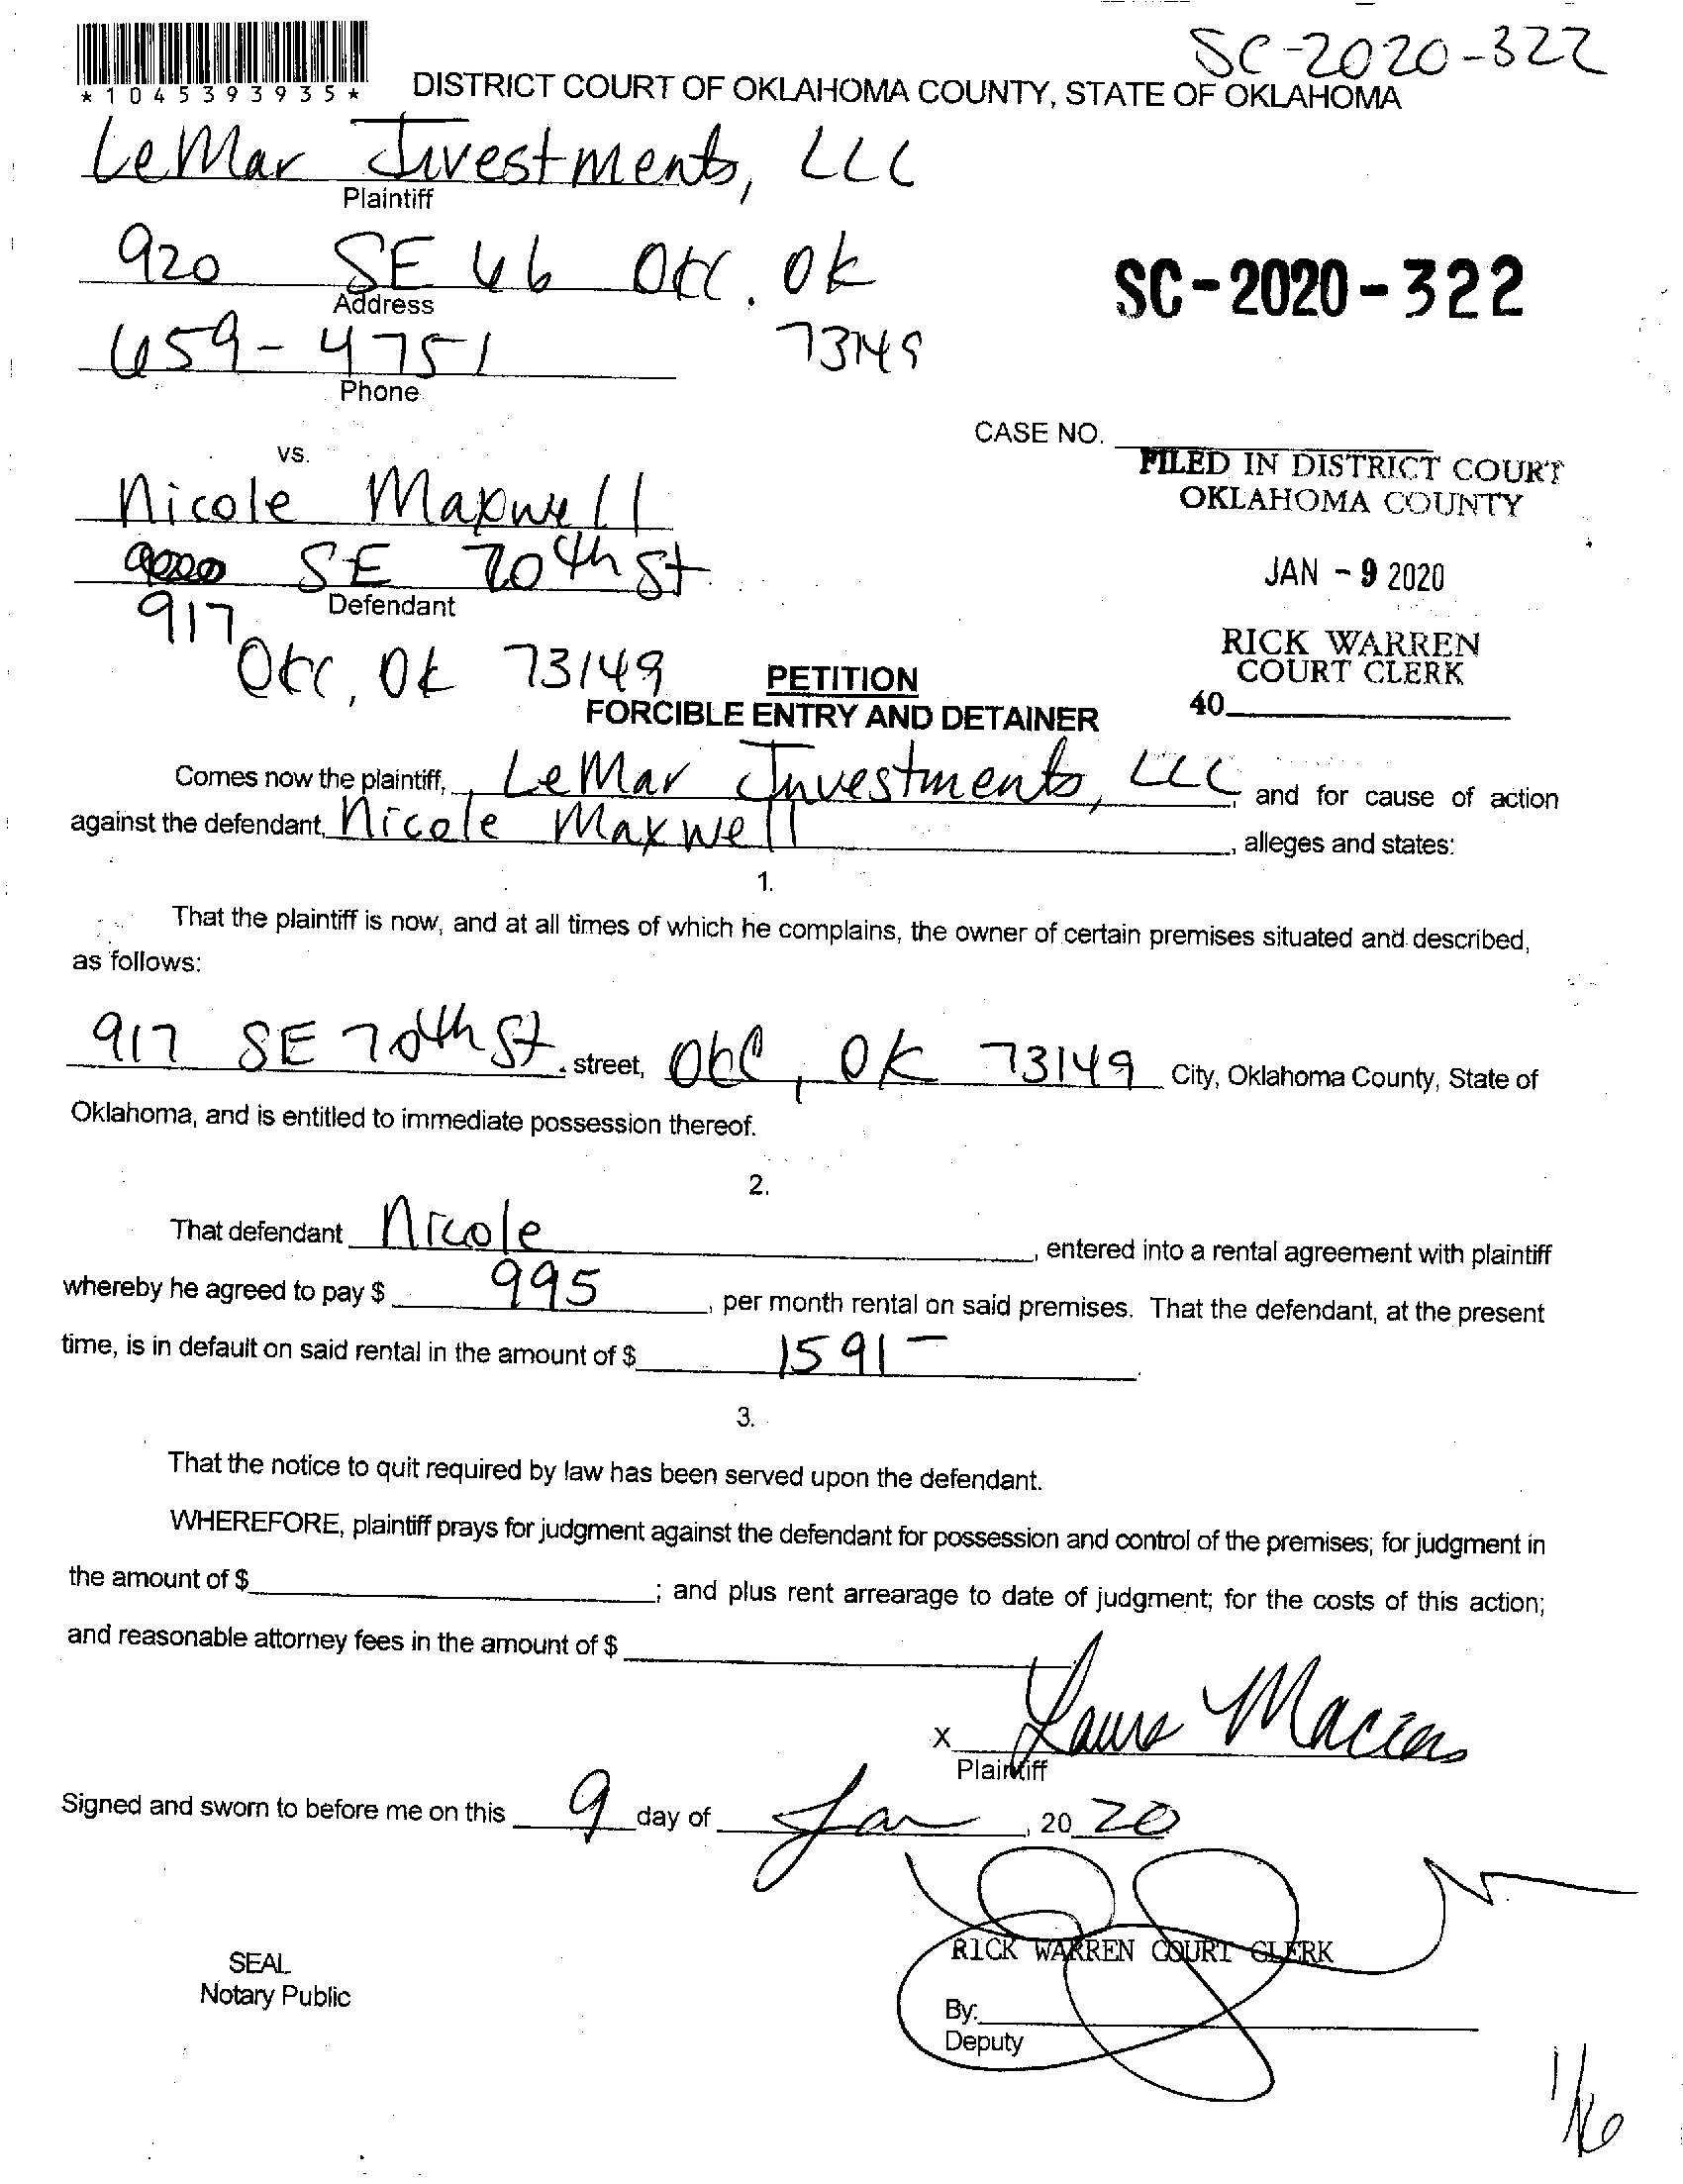 SC-2020-322
*1045393935*
DISTRICT COURT OF OKLAHOMA COUNTY, STATE OF OKLAHOMA
LeMar Investments, LLC
Plaintiff
920 SE 66 OKC. OK
Address
SC-2020-322
659-4751 73149
Phone
CASE NO.
vs.
FILED IN DISTRICT COURT
OKLAHOMA COUNTY
Nicole Maxwell
SE 70th St
JAN - 9 2020
Defendant
917
OKC, OK 73149
RICK WARREN
COURT CLERK
40
PETITION
FORCIBLE ENTRY AND DETAINER
Comes now the plaintiff, LeMar Investments, LLC, and for cause of action
against the defendant, Nicole Maxwell, alleges and states:
1.
That the plaintiff is now, and at all times of which he complains, the owner of certain premises situated and described,
as follows:
917 SE 70th St. street, OKC, OK 73149 City, Oklahoma County, State of
Oklahoma, and is entitled to immediate possession thereof.
2.
That defendant Nicole, entered into a rental agreement with plaintiff
whereby he agreed to pay $ 995, per month rental on said premises. That the defendant, at the present
time, is in default on said rental in the amount of $ 1591-.
3.
That the notice to quit required by law has been served upon the defendant.
WHEREFORE, plaintiff prays for judgment against the defendant for possession and control of the premises; for judgment in
the amount of $ ; and plus rent arrearage to date of judgment; for the costs of this action;
and reasonable attorney fees in the amount of $
X Laura Macias
Plaintiff
Signed and sworn to before me on this 9 day of Jan, 20 20
RICK WARREN COURT CLERK
SEAL
Notary Public
By:
Deputy
1/16